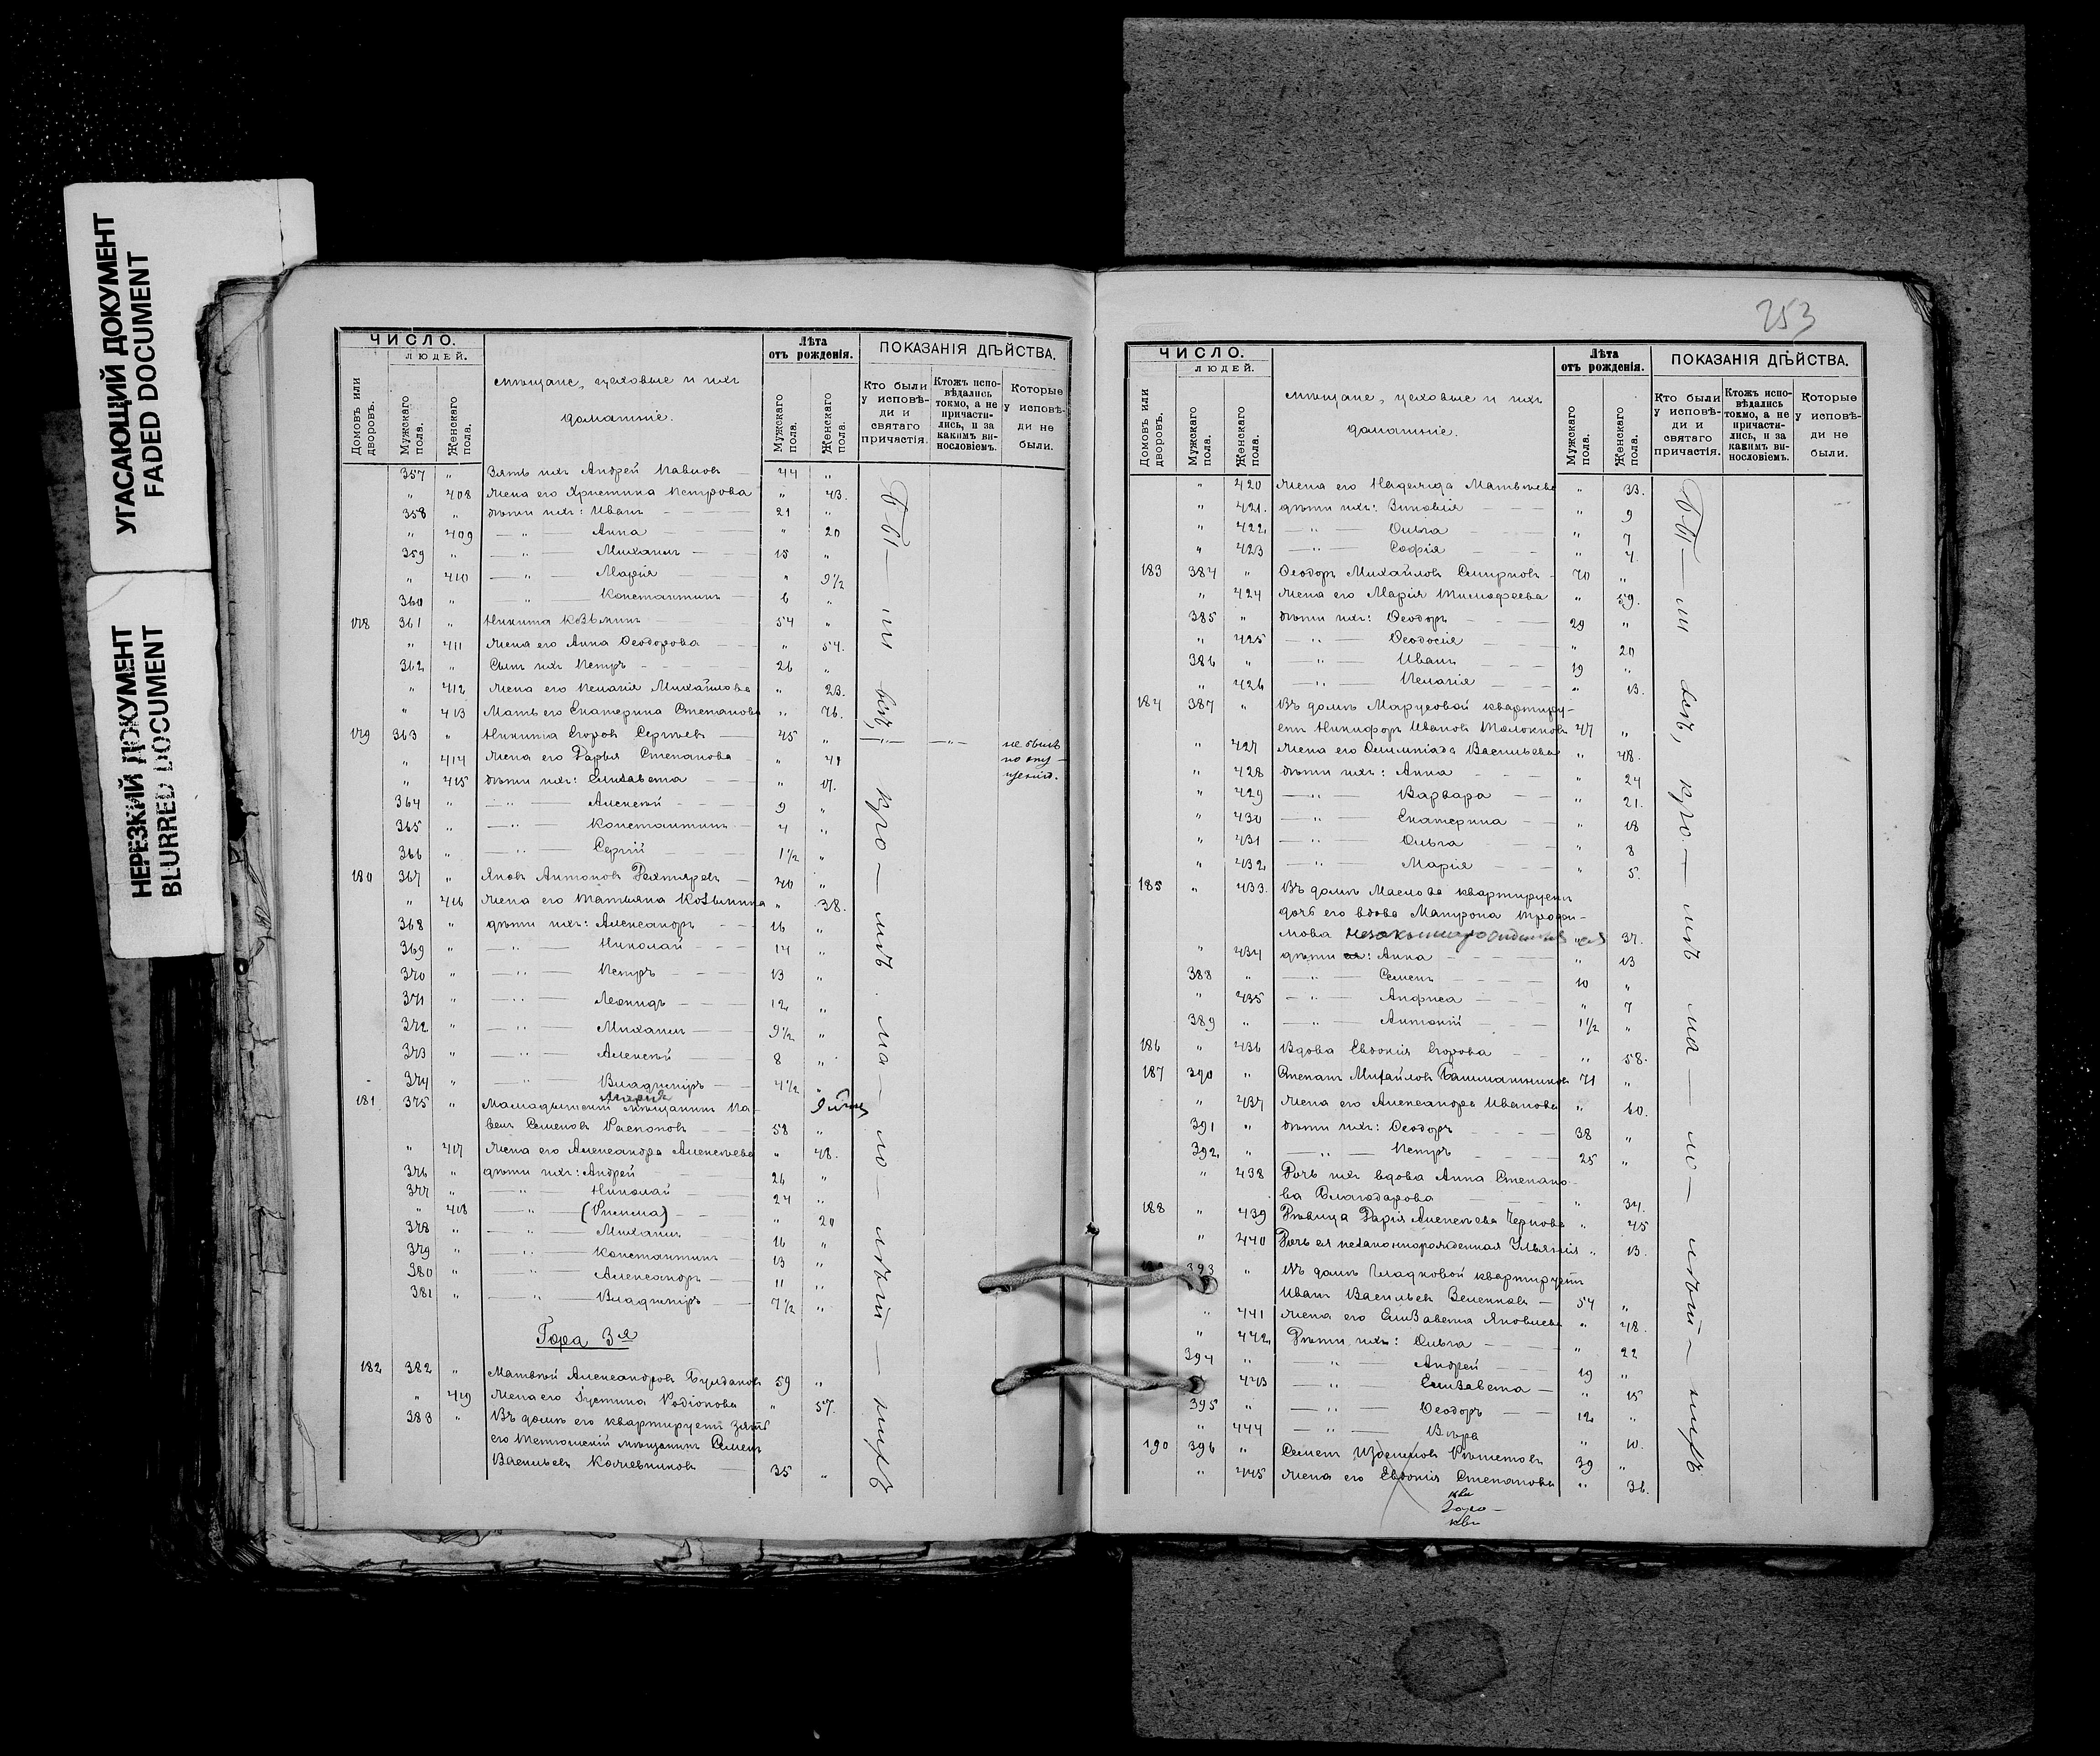 УГАСАЮЩИЙ ДОКУМЕНТ
FADED DOCUMENT
НЕРЕЗКИЙ ДОКУМЕНТ
BLURRED DOCUMENT
ЧИСЛО. Лѣта отъ рожденія. ПОКАЗАНІЯ ДѢЙСТВА.
ЛЮДЕЙ.
Домовъ или дворовъ. Мужскаго пола. Женскаго пола. мѣщане, цеховые и ихъ домашніе. Мужскаго пола. Женскаго пола. Кто были у исповѣди и святаго причастія. Ктожъ исповѣдались токмо, а не причастились, и за какимъ винословіемъ. Которые у исповѣди не были.
357 " Зять ихъ Андрей Павловъ 44 "
" 408 Жена его Христина Петрова " 43.
358 " дѣти ихъ: Иванъ 21 "
" 409 — " — Анна " 20
359 " — " — Михаилъ 15 "
" 410 — " — Марія " 9½
360 " — " — Константинъ 6 "
178 361 " Никита Козьминъ 54 "
" 411 Жена его Анна Ѳеодорова " 54.
362 " Сынъ ихъ Петръ 26 "
" 412 Жена его Пелагія Михайлова " 23.
" 413 Мать его Екатерина Степанова " 76.
179 363 " Никита Егоровъ Сергѣевъ 45 " не былъ
" 414 Жена его Дарья Степанова " 41 по опу-
" 415 дѣти ихъ: Елизавета " 17. щенію.
364 " — " — Алексѣй 9 "
365 " — " — Константинъ 4 "
366 " — " — Сергій 1½ "
180 367 " Яковъ Антоновъ Дехтяревъ 40 "
" 416 Жена его Татьяна Козьмина " 38.
368 " дѣти ихъ: Александръ 16 "
369 " — " — Николай 14 "
370 " — " — Петръ 13 "
371 " — " — Леонидъ 12 "
372 " — " — Михаилъ 9½ "
373 " — " — Алексѣй 8 "
374 " — " — Владиміръ 4½ "
Марія
181 375 " Мамадышскій мѣщанинъ Па-
велъ Семеновъ Распоповъ 58 "
" 417 Жена его Александра Алексѣева " 48.
376 " дѣти ихъ: Андрей 26 "
377 " — " — Николай 24 "
" 418 — " — " 20
378 " — " — Михаилъ 16 "
379 " — " — Константинъ 13 "
380 " — " — Александръ 11 "
381 " — " — Владиміръ 7½ "
Гора 3я
182 382 " Матвѣй Александровъ Булдаковъ 59 "
" 419 Жена его Іустина Родіонова " 57.
383 " Въ домѣ его квартируетъ зять
его Тетюшскій мѣщанинъ Семенъ
Васильевъ Кожевниковъ 35 "
Бы — ли всѣ, кро — мѣ ма — ло — лѣт — нихъ
253
ЧИСЛО. Лѣта отъ рожденія. ПОКАЗАНІЯ ДѢЙСТВА.
ЛЮДЕЙ.
Домовъ или дворовъ. Мужскаго пола. Женскаго пола. мѣщане, цеховые и ихъ домашніе. Мужскаго пола. Женскаго пола. Кто были у исповѣди и святаго причастія. Ктожъ исповѣдались токмо, а не причастились, и за какимъ винословіемъ. Которые у исповѣди не были.
" 420 Жена его Надежда Матвѣева " 33.
" 421. дѣти ихъ: Зиновія " 9
" 422 — " — Ольга " 7
" 423 — " — Софія " 4.
183 384 " Ѳеодоръ Михайловъ Смирновъ 70 "
" 424 Жена его Марія Тимофеева " 59.
385 " дѣти ихъ: Ѳеодоръ 29 "
" 425 — " — Ѳеодосія " 20
386 " — " — Иванъ 19 "
" 426 — " — Пелагія " 13.
184 387 " Въ домѣ Марусовой квартиру-
етъ Никифоръ Ивановъ Толокновъ 47 "
" 427 Жена его Олимпіада Васильева " 48.
" 428 дѣти ихъ: Анна " 24
" 429 — " — Варвара " 21.
" 430 — " — Екатерина " 18
" 431 — " — Ольга " 8
" 432 — " — Марія " 5.
185 " 433. Въ домѣ Маслова квартируетъ
дочь его вдова Матрона Трофи-
мова " 37.
" 434 дѣти ея: Анна " 13
388 " — " — Семенъ 10 "
" 435 — " — Анфиса " 7
389 " — " — Антоній 1½ "
186 " 436 Вдова Евдокія Егорова " 58.
187 390 " Степанъ Михайловъ Башмашниковъ 71 "
" 437 Жена его Александра Иванова " 60.
391 " дѣти ихъ: Ѳеодоръ 38 "
392 " — " — Петръ 25 "
" 438 Дочь ихъ вдова Анна Степано-
ва Благодарова " 34.
188 " 439 Дѣвица Дарія Алексѣева Чернова " 45
" 440 Дочь ея незаконнорожденная Ульянія " 13.
393 " Въ домѣ Гладковой квартируетъ
Иванъ Васильевъ Зеленковъ 54 "
" 441 Жена его Елизавета Яковлева " 48.
" 442 Дѣти ихъ: Ольга " 22
394 " — " — Андрей 19 "
443 — " — Елизавета " 15
395 " — " — Ѳеодоръ 12 "
" 444 — " — Вѣра " 10.
190 396 " Семенъ Рѣшетовъ 39 "
" 445 Жена его Евдокія Степанова " 36.
Бы — ли всѣ, кро — мѣ ма — ло — лѣт — нихъ